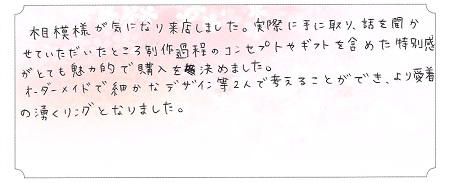 相模様が気になり来店しました。実際に手に取り、話を聞か
せていただいたところ制作過程のコンセプトやギフトを含めた特別感
がとても魅力的で購入を決めました。
オーダーメイドで細かなデザイン等2人で考えることができ、より愛着
の湧くリングとなりました。